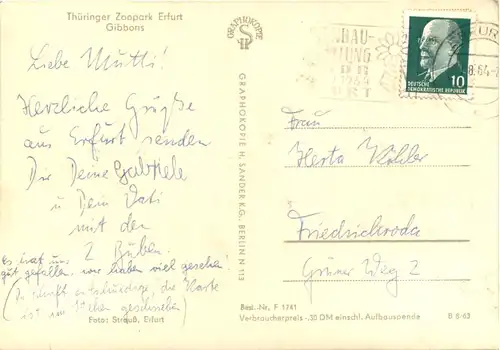 Thüringer Zoopark Erfurt
Gibbons
Liebe Mutti!
Herzliche Grüße
aus Erfurt senden
Dir Deine Gabriele
u Dein Vati
mit den
2 Buben.
Es hat uns
gut gefallen wir haben viel gesehen!
die Karte
ist im geschrieben)
Foto: Strauß, Erfurt
GRAPHOKOPIE
GRAPHOKOPIE H. SANDER K.G., BERLIN N 113
1964
8.64
10
DEUTSCHE
DEMOKRATISCHE REPUBLIK
Frau
Herta Köhler
Friedrichroda
Grüner Weg 2
Best.-Nr. F 1741
Verbraucherpreis -,30 DM einschl. Aufbauspende